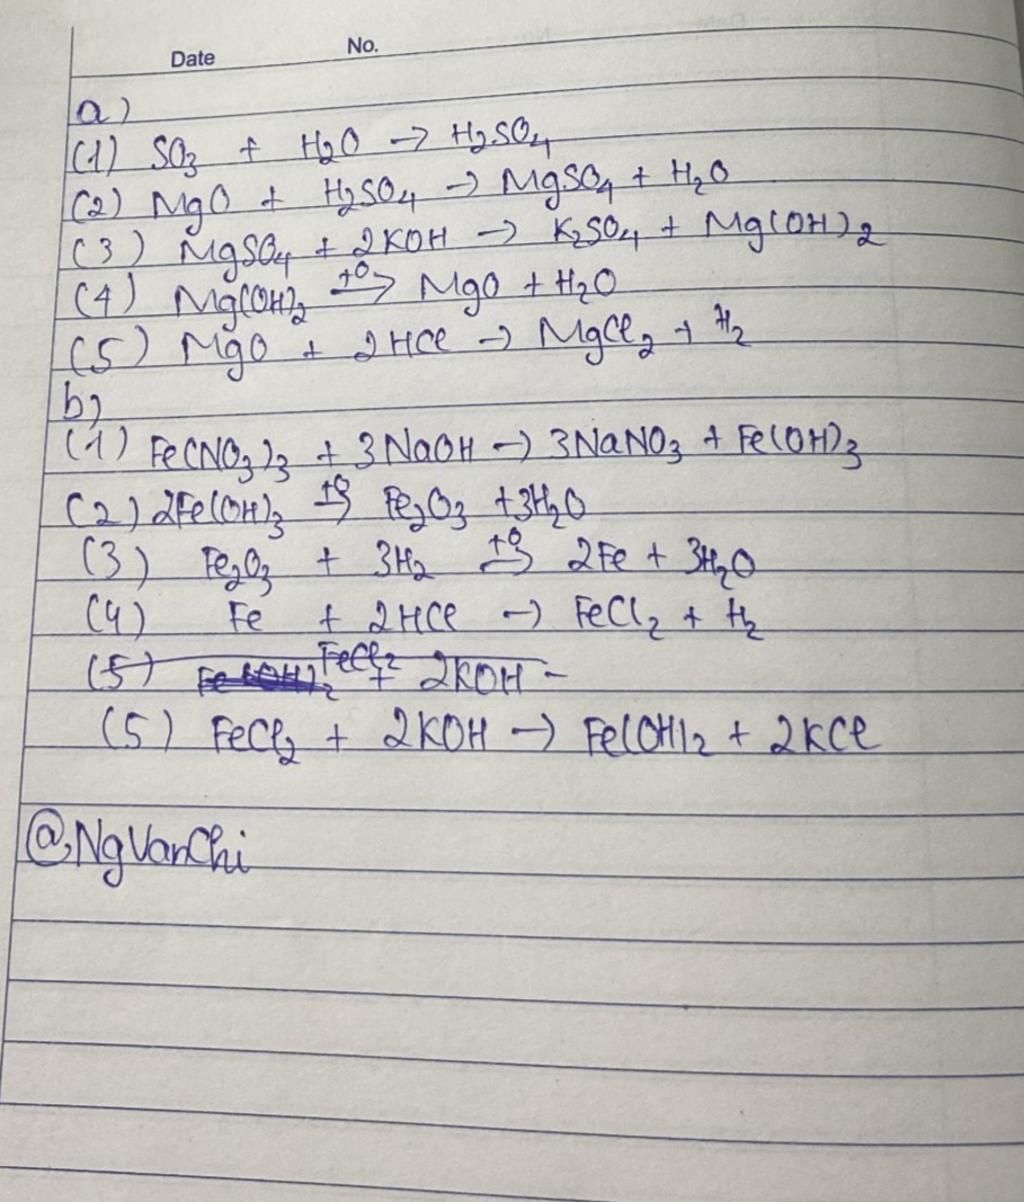 Date No.
a)
(1) SO3 + H2O → H2SO4
(2) MgO + H2SO4 → MgSO4 + H2O
(3) MgSO4 + 2KOH → K2SO4 + Mg(OH)2
(4) Mg(OH)2 t° → MgO + H2O
(5) MgO + 2HCl → MgCl2 + H2
b)
(1) Fe(NO3)3 + 3NaOH → 3NaNO3 + Fe(OH)3
(2) 2Fe(OH)3 t° → Fe2O3 + 3H2O
(3) Fe2O3 + 3H2 t° → 2Fe + 3H2O
(4) Fe + 2HCl → FeCl2 + H2
(5) Fe(OH)2 FeCl2 + 2KOH -
(5) FeCl2 + 2KOH → Fe(OH)2 + 2KCl
@NgVanChi